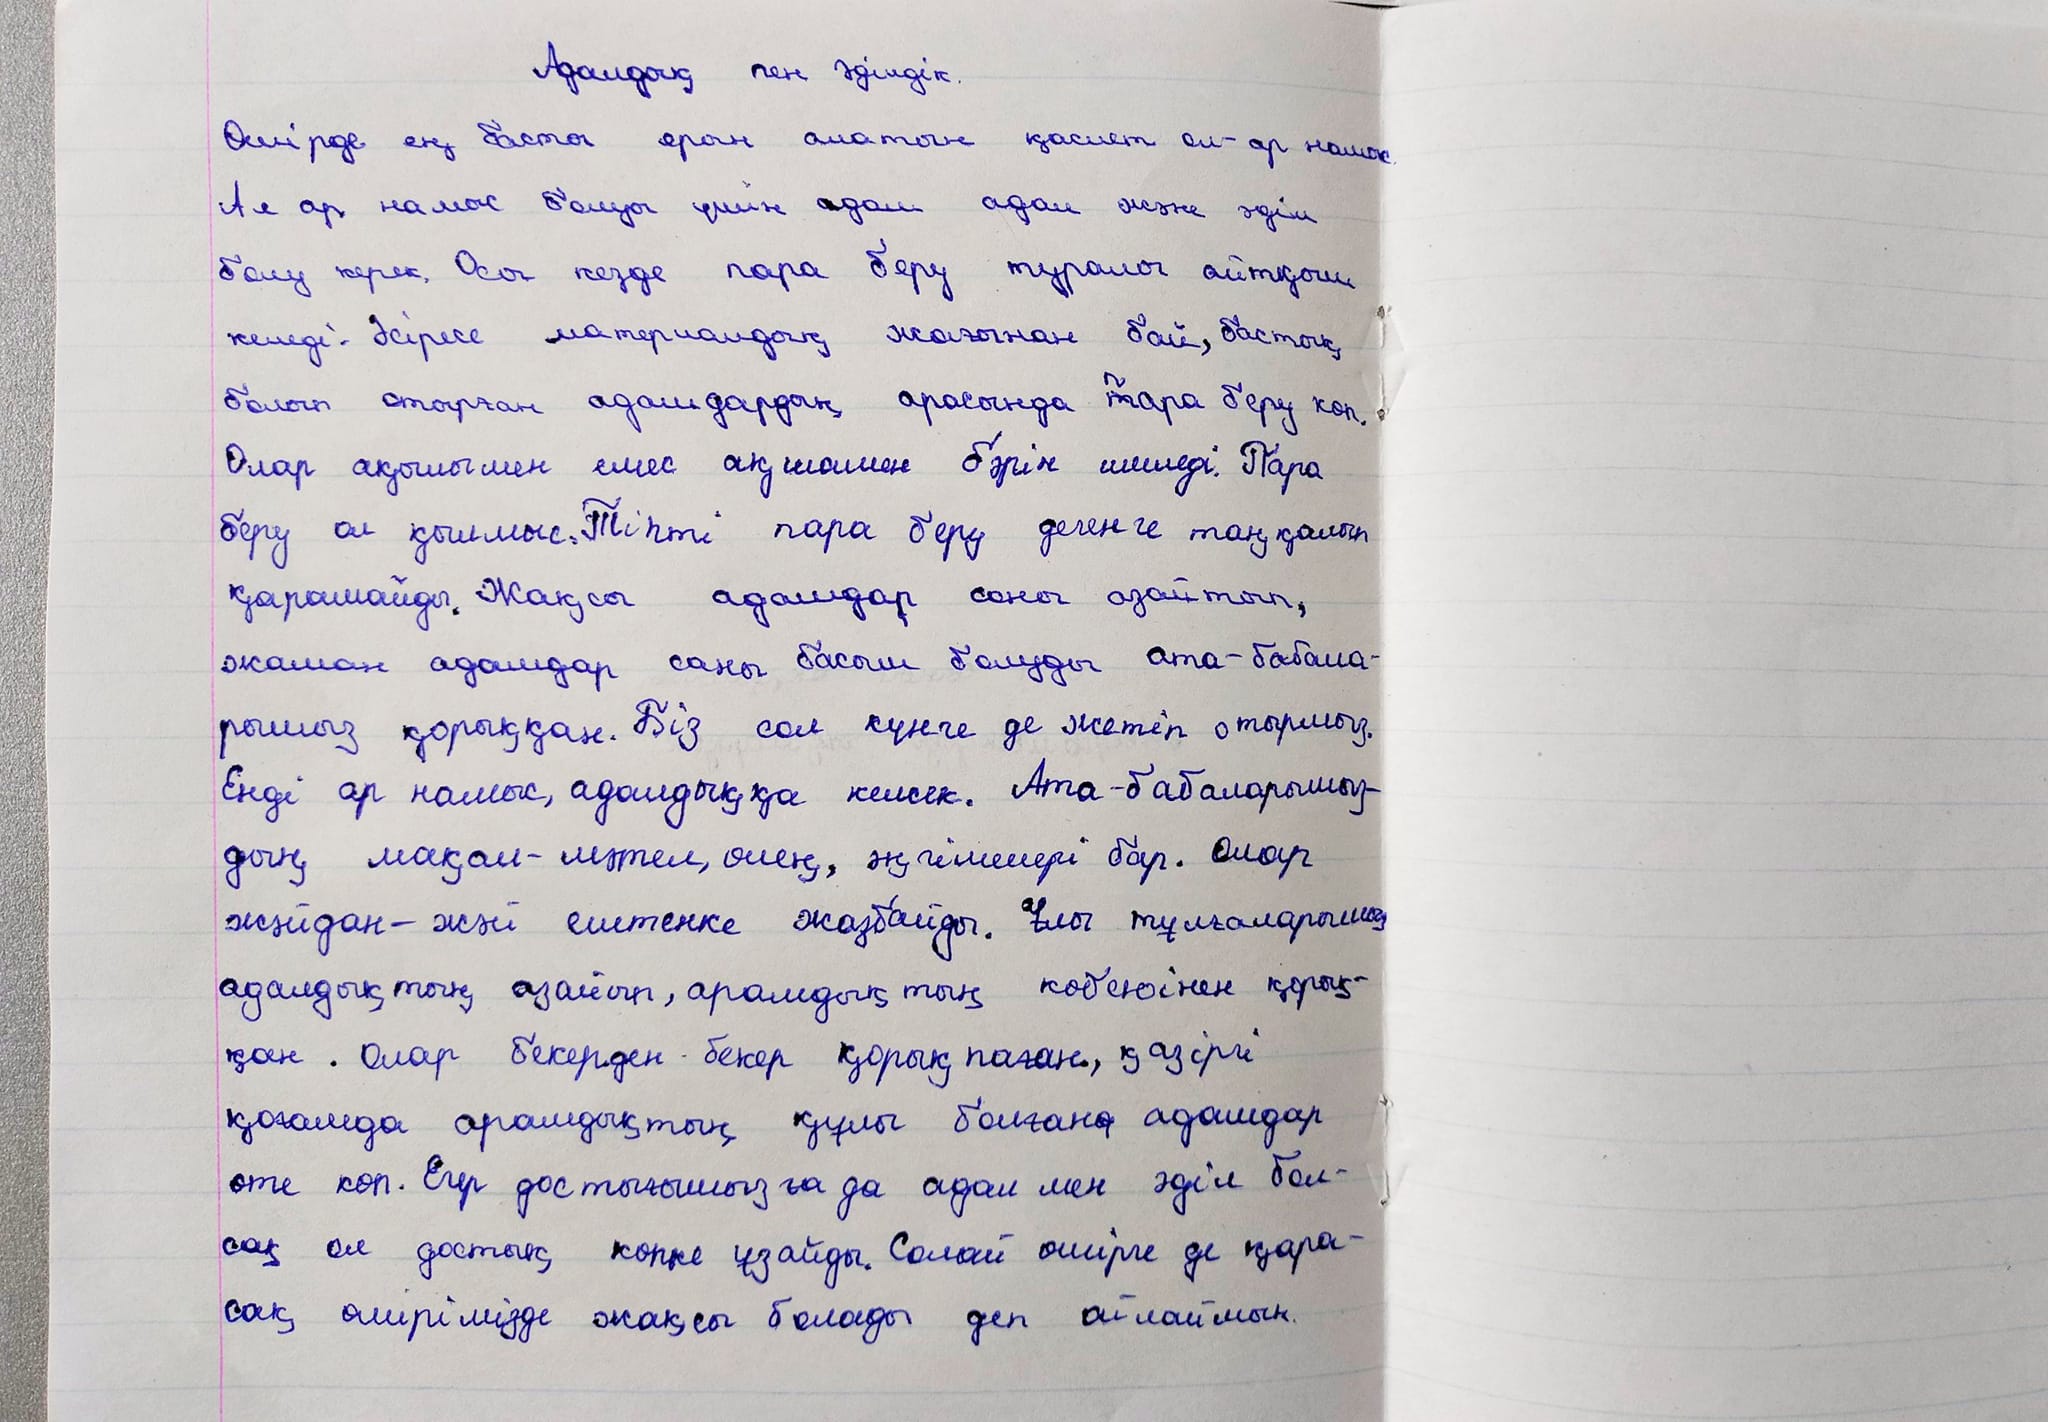 Адалдық пен әділдік.
Өмірде ең басты орын алатын қасиет ол-ар намыс.
Ал ар намыс болуы үшін адам адал және әділ
болу керек. Осы кезде пара беру туралы айтқым
келеді. Әсіресе материалдық жағынан бай, бастық
болып отырған адамдардың арасында пара беру көп.
Олар ақылымен емес ақшамен бәрін шешеді. Пара
беру ол қылмыс. Тіпті пара беру дегенге таңқалып
қарамайды. Жақсы адамдар саны азайтып,
жаман адамдар саны басым болуды ата-бабала-
рымыз қорыққан. Біз сол күнге де жетіп отырмыз.
Енді ар намыс, адалдыққа келсек. Ата-бабаларымыз-
дың мақал-мәтел, өлең, әңгімелері бар. Олар
жәйдан-жәй ештенке жазбайды. Ұлы тұлғаларымыз
адалдықтың азайып, арамдықтың көбеюінен қорық-
қан. Олар бекерден-бекер қорықпаған, қазіргі
қоғамда арамдықтың құлы болған адамдар
өте көп. Егер достығымызға да адал мен әділ бол-
сақ ол достық көпке ұзайды. Солай өмірге де қара-
сақ өмірімізде жақсы болады деп ойлаймын.